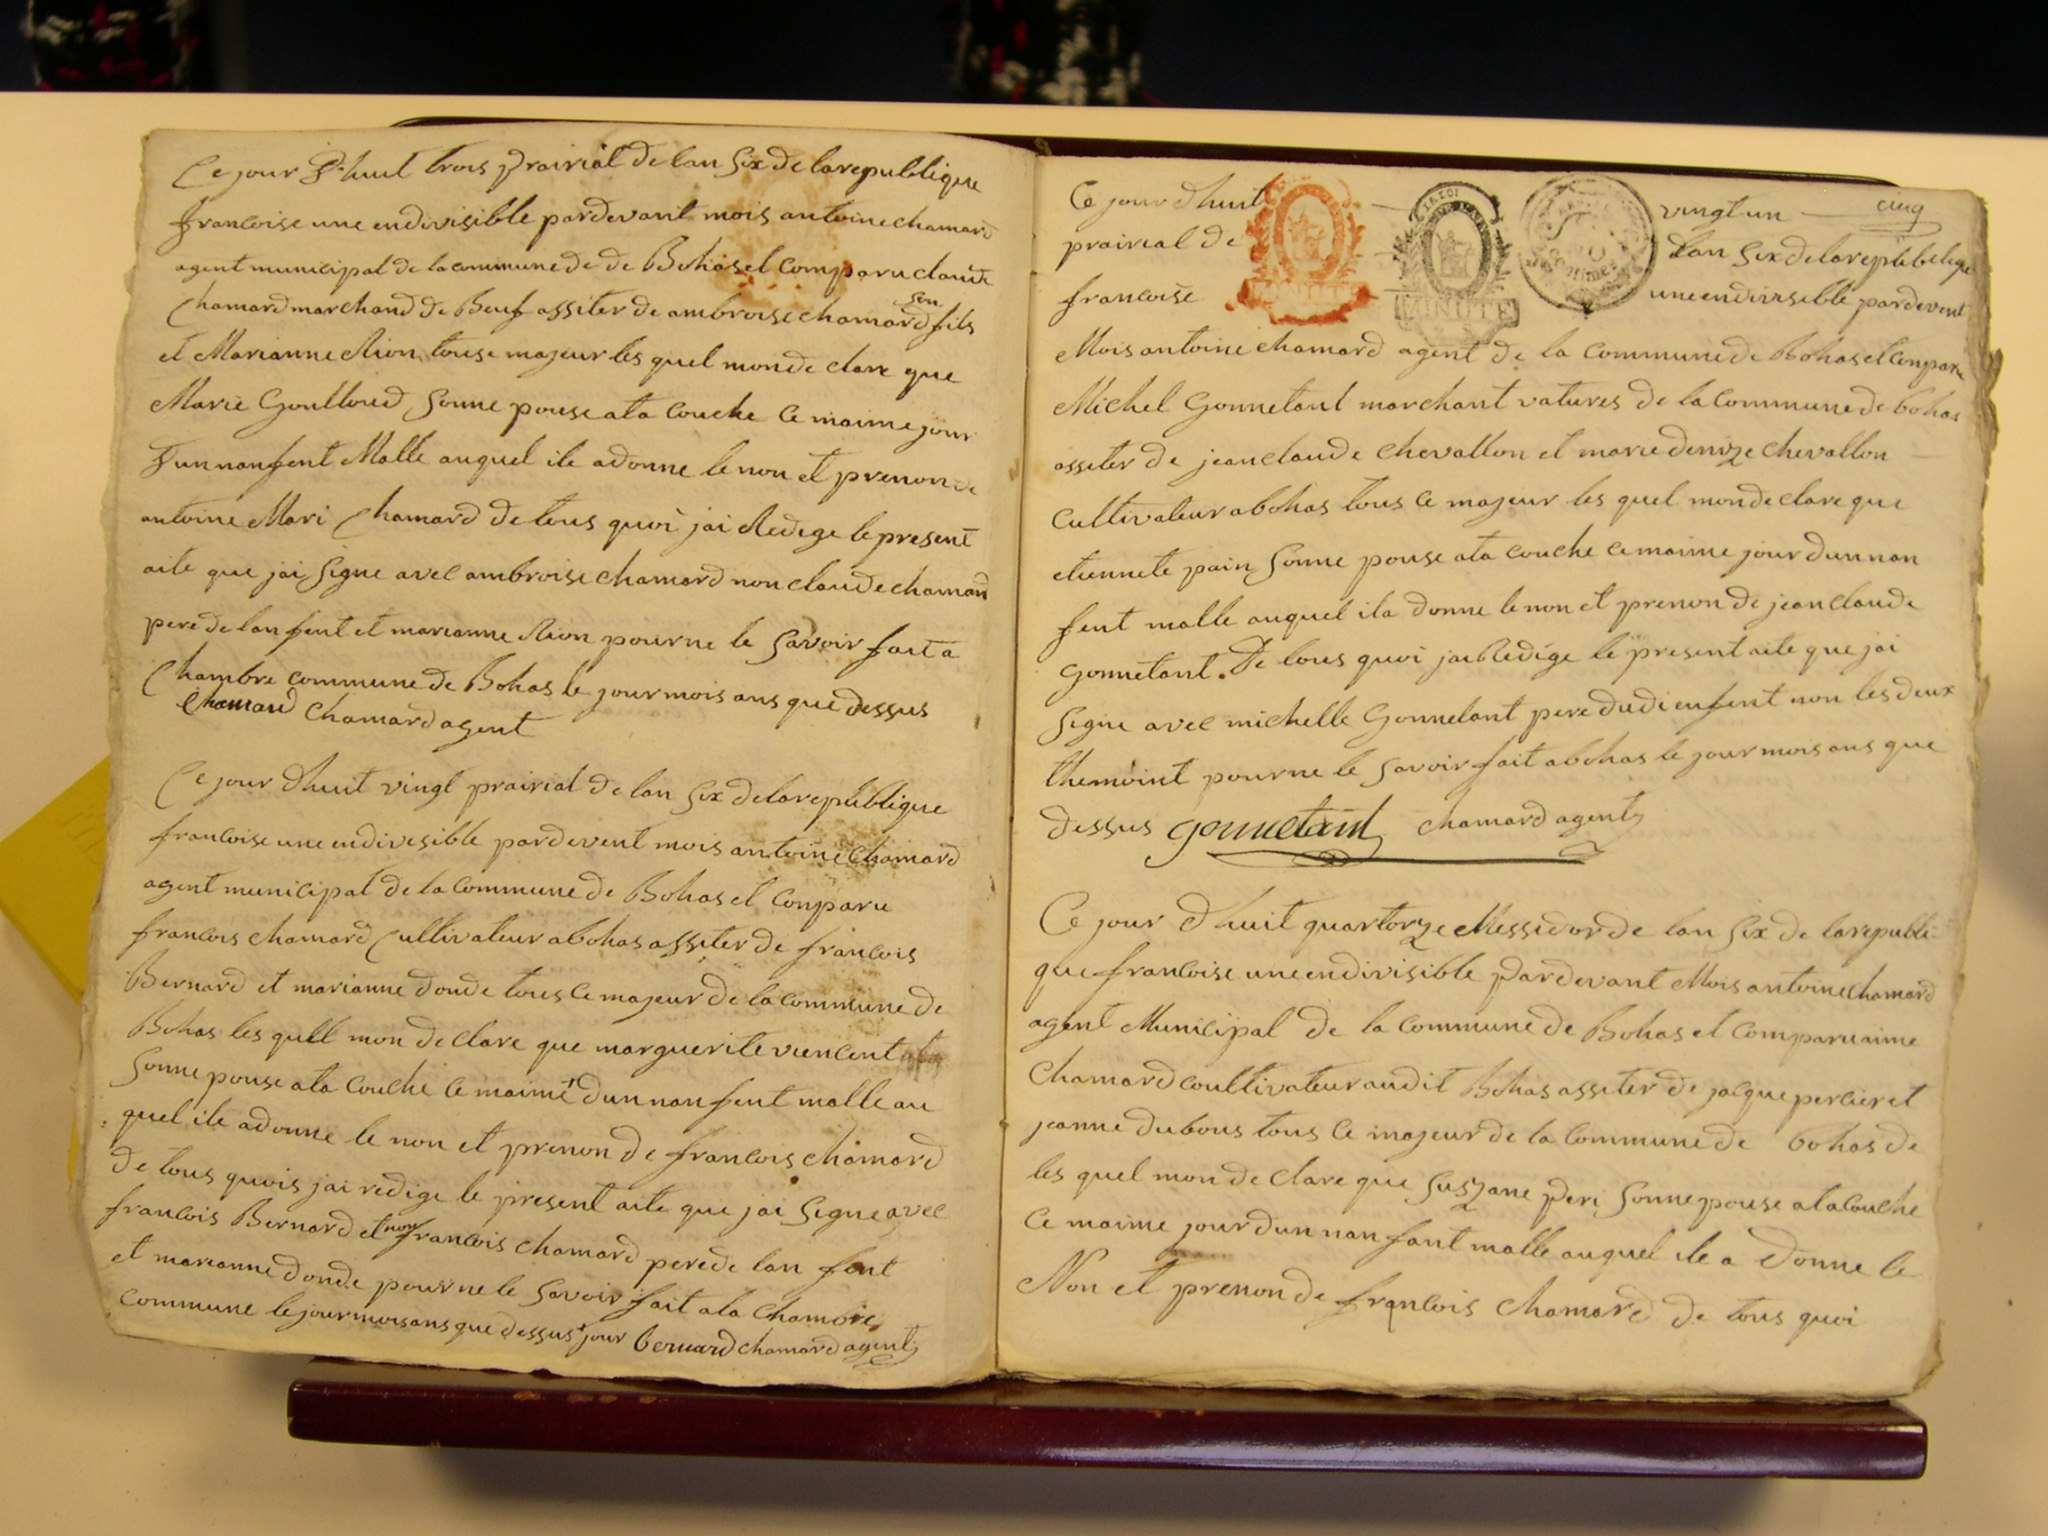 Ce jour d'huit trois prairial de lan six de larepublique
francoise une endivisible pardevant mois antoine chamard
agent municipal de la commune de de Bohas el comparu claude
Chamard marchand de Beuf assiter de ambroise chamard son fils
et Marianne Rion touse majeur les quel mon de clare que
Marie Goulloud sonne pouse ata couche ce maime jour
dun nanfent Malle auquel ile adonne le non et prenon de
antoine Mari Chamard de tous quoi jai Redige le present
aite que jai signe avec ambroise chamard non claude chamard
pere de lanfent et marianne Rion pour ne le savoir fait a
Chambre commune de Bohas le jour mois ans que dessus
Chamard chamard agent
Ce jour dhuit vingt prairial de lan six de larepublique
francoise une endivesible pardevent mois antoine Chamard
agent municipal de la commune de Bohas el conparu
francois chamard Cultivateur a bohas assiter de francois
Bernard et marianne donde tous ce majeur de la commune de
Bohas les quell mon de clare que marguerite viencent
sonne pouse ata couche ce maime dun nanfent malle au
quel ile adonne le non et prenon de francois chamard
de tous quois jai redige le present aite que jai signe avec
francois Bernard et non francois chamard pere de lan fent
et marianne donde pour ne le savoir fait ala chambre
commune le jour mois ans que dessus jour bernard chamard agent
Ce jour dhuit vingt un cinq
prairial de lan six de larepubelique
francoise une endivisible pardevent
Mois antoine chamard agent de la commune de Bohas el conparu
Michel Gonnetant marchant vatures de la commune de bohas
assiter de jean claude chevallon et marie denize chevallon
cultivateur a bohas tous ce majeur les quel mon de clare que
etiennete pain sonne pouse ata couche ce maime jour dun nan
fent malle auquel ila donne le non et prenon de jean claude
gonnetant. De tous quoi jai Redige le present aite que jai
signe avec michelle Gonnetant pere dudi enfent non les deux
themoint pour ne le savoir fait a bohas le jour mois ans que
dessus gonnetant chamard agent
Ce jour dhuit quartorze Messidor de lan six de larepubli
que francoise une endivisible Pardevant Mois antoine chamard
agent Municipal de la commune de Bohas et comparu aime
Chamard coultivateur audit Bohas assiter de jacque percier et
jeanne dubous tous ce majeur de la commune de bohas de
les quel mon de clare que suszane Peri sonne pouse ata couche
ce maime jour dun nanfant malle auquel ile a donne le
Non et prenon de francois chamard de tous quoi
MINUTE
MINUTE